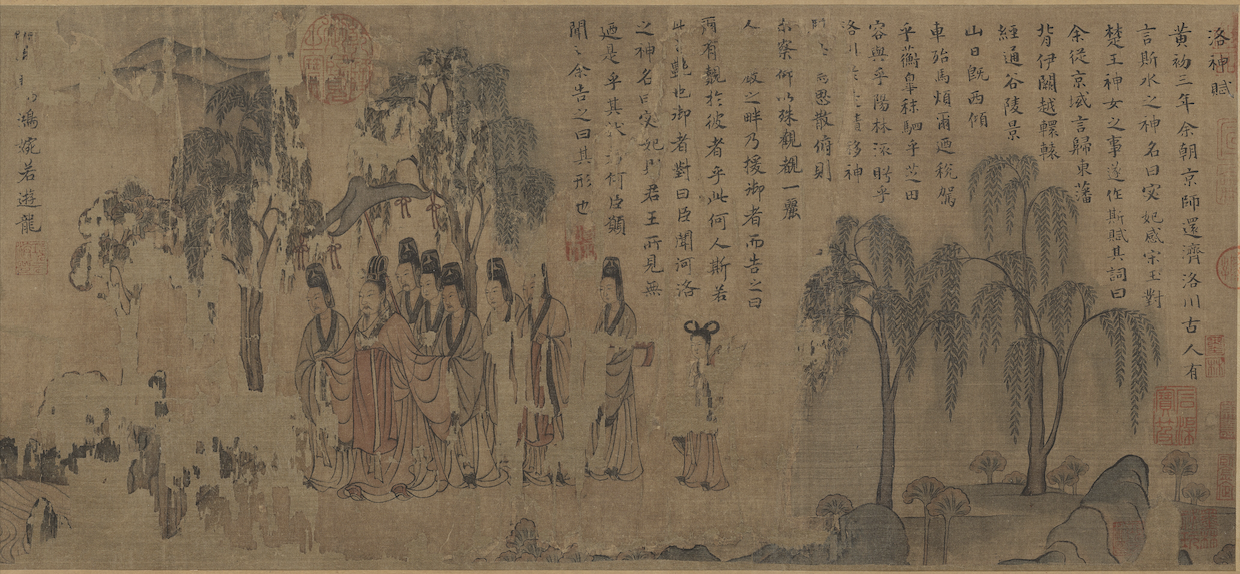 洛神賦
黃初三年余朝京師還濟洛川古人有
言斯水之神名曰宓妃感宋玉對
楚王神女之事遂作斯賦其詞曰
余從京域言歸東藩
背伊闕越轘轅
經通谷陵景
山日既西傾
車殆馬煩爾迺稅駕
乎蘅皋秣駟乎芝田
容與乎陽林流眄乎
洛川於移神
思散俯則
察仰以殊觀覩一麗
人之畔乃援御者而告之曰
爾有覿於彼者乎此何人斯若
此之艷也御者對曰臣聞河洛
之神名曰宓妃則君王所見無
迺是乎其狀何臣願
聞之余告之曰其形也
鴻婉若遊龍